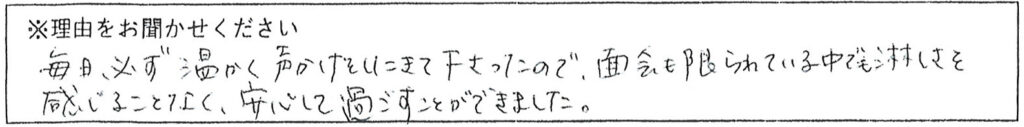 ※理由をお聞かせください
毎日、必ず温かく声かけをしにきて下さったので、面会も限られている中でも淋しさを
感じることなく、安心して過ごすことができました。